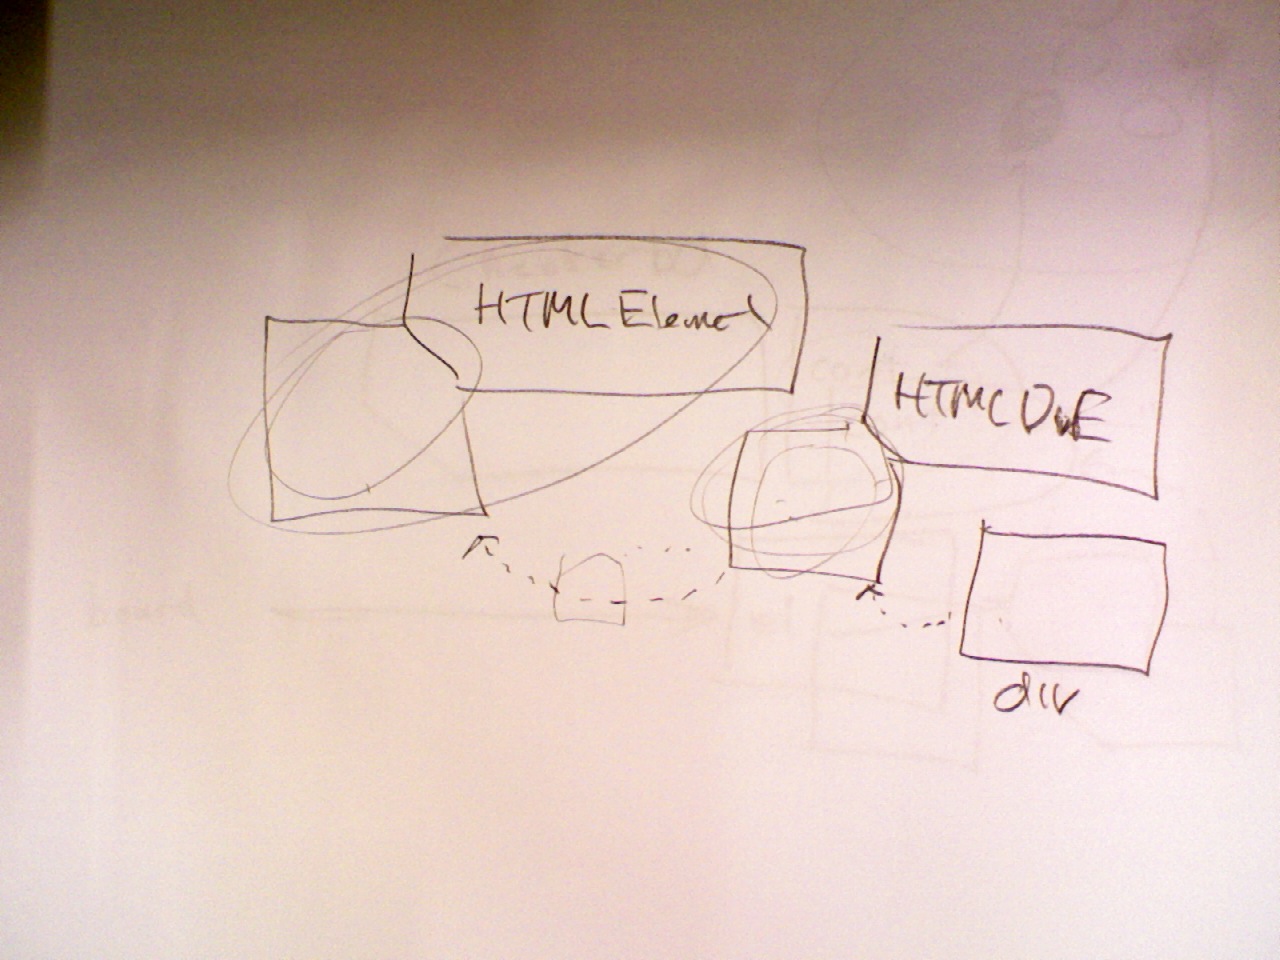 HTMLElement
HTMLDivE
div